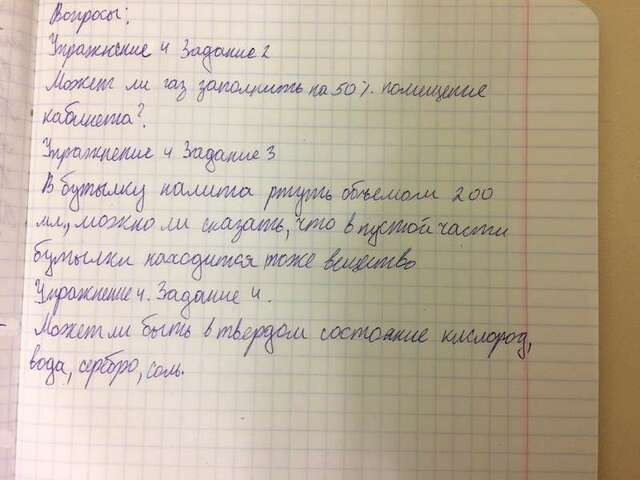 Вопросы:
Упражнение 4 Задание 2
Может ли газ заполнить на 50% помещение
кабинета?
Упражнение 4 Задание 3
В бутылку налита ртуть объемом 200
мл, можно ли сказать, что в пустой части
бутылки находится тоже вещество
Упражнение 4. Задание 4.
Может ли быть в твердом состояние кислород,
вода, серебро,